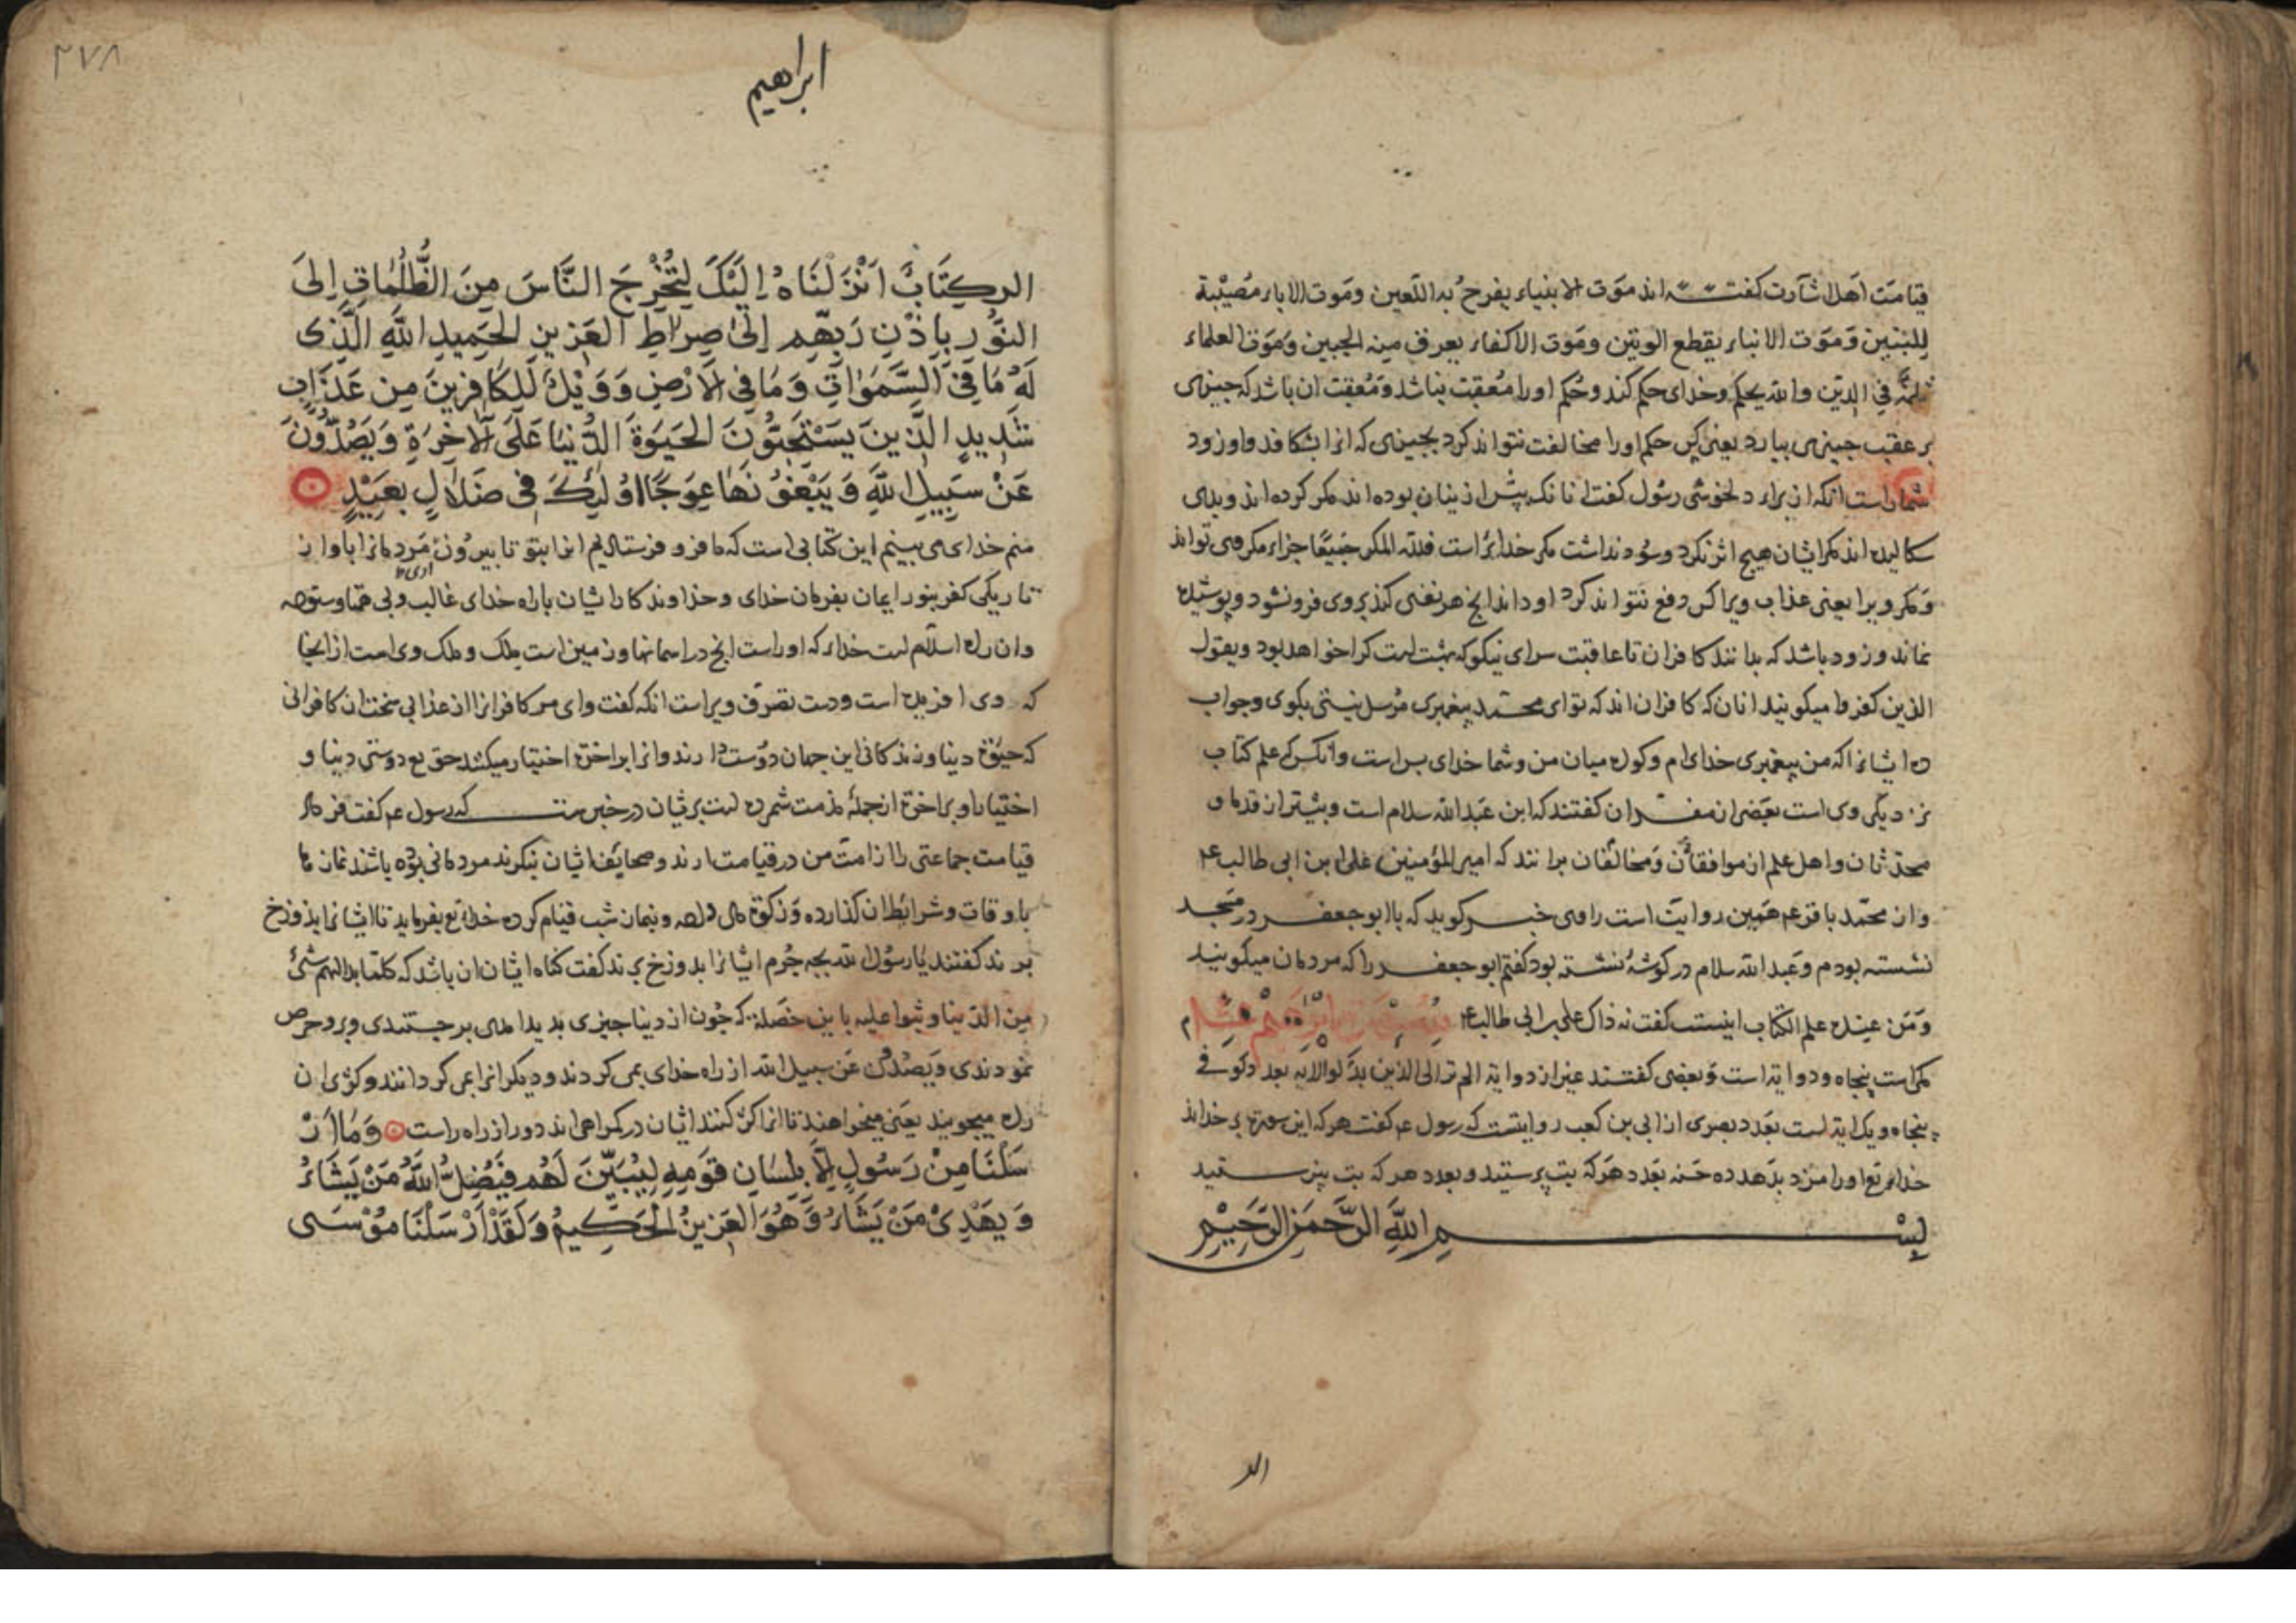 قیامت اهل اشارت کفتـــه اند موت الانبیاء یفرح به اللعین وموت الاباء مصیبة
للبنین وموت الابناء یقطع الوتین وموت الاکفاء یعرق منه الجبین وموت العلماء
ثلمة فی الدین والله یحکم وخدای حکم کند وحکم او را معقب نباشد ومعقب ان باشد که جیزی
بر عقب جیزی بیارد یعنی کس حکم او را مخالفت نتواند کرد بجیزی که انرا بشکافد واو زود
شمار است انکه از برای دلخوشی رسول کفت انانکه پیش از ینان بوده اند مکر کرده اند وبدی
سکالیده اند مکر ایشان هیج اثر نکرد وسود نداشت مکر خدائرا است فلله المکر جمیعا جزاء مکر می تواند
ومکر ویرا یعنی عذاب ویرا کس دفع نتواند کرد او داند انج هر نفسی کند بروی فرو نشود وپوشیده
نماند وزود باشد که بدانند کافران تا عاقبت سرای نیکو که بهشت است کرا خواهد بود ویقول
الذین کفروا میکویند انان که کافران اند که تو ای محمد پیغمبری مرسل نیستی بکوی وجواب
ده ایشانرا که من پیغمبری خدای ام وکواه میان من وشما خدای بس است وانکس که علم کتاب
نزدیکی وی است بعضی از مفسران کفتند که ابن عبد الله سلام است وبیشتر از قدما و
محدثان واهل علم از موافقان ومخالفان برانند که امیر المؤمنین علی ابن ابی طالب ع
واز محمد باقر ع همین روایت است راوی خبـــر کوید که با ابو جعفـــر در مسجد
نشسته بودم وعبد الله سلام در کوشهٔ نشسته بود کفتم ابو جعفـــر را که مردمان میکویند
ومن عنده علم الکتاب اینست کفت نه ذاک علی بن ابی طالب ع سورة ابرهیم علیه السلام
مکی است پنجاه ودو ایة است وبعضی کفتند غیر از دو ایة الم تر الی الذین بدلوا الایة بعدد کوفی
پنجاه ویک ایة است بعدد بصری از ابی بن کعب روایتست که رسول ع کفت هر که این سورة بر خواند
خدای تع او را مزد بدهد ده حسنه بعدد هر که بت پرستید وبعدد هر که بت نپرستید
بســـم الله الرحمن الرحیم
الر
۲۷۸
ابراهیم
الر کِتَابٌ اَنْزَلْنَاهُ اِلَیْکَ لِتُخْرِجَ النَّاسَ مِنَ الظُّلُمَاتِ اِلیَ
النُّوْرِ بِاِذْنِ رَبِّهِم اِلیٰ صِرَاطِ العَزیزِ الحَمِیدِ اللّٰهِ الَّذِی
لَهُ مَا فِی السَّمَوَاتِ وَمَا فِی الاَرْضِ وَوَیْلٌ لِلکَافِرِینَ مِن عَذَابٍ
شَدِیدٍ الَّذِینَ یَسْتَحِبُّونَ الحَیَوةَ الدُّنیَا عَلَی الآخِرَةِ وَیَصُدُّوْنَ
عَنْ سَبِیلِ اللّٰهِ وَیَبْغُوْنَهَا عِوَجًا اُولٰئِکَ فِی ضَلَالٍ بَعِیْدٍ
منم خدای می بینم این کتابی است که ما فرو فرستادیم انرا بتو تا بیرون اری مردمانرا با واز
تاریکی کفر بنور ایمان بفرمان خدای وخداوندکار ایشان با راه خدای غالب وبی همتا وستوده
وان راه اسلام است خدای که او راست انج در اسمانها وزمین است بملک وملک وی است از انجا
که وی افریده است ودست تصرف ویراست انکه کفت وای مر کافرانرا از عذابی سخت ان کافرانی
که حیوة دینا وزندکانی این جهان دوست دارند وانرا بر اخرة اختیار میکنند حق تع دوستی دینا و
اختیار او بر اخرة از جملهٔ مذمت شمرده است بریشان در خبر ست که رسول ع کفت فردای
قیامت جماعتی را از امت من در قیامت ارند وصحایف ایشان نیکرند مردمانی بوده باشند نماز ها
باوقات وشرایط ان کذارده وزکوة مال داده وبنماز شب قیام کرده خدای تع بفرماید تا ایشانرا بدوزخ
برند کفتند یا رسول الله بجه جرم ایشانرا بدوزخ برند کفت کناه ایشان ان باشد که کلما بدا لهم شیء
من الدنیا وثبوا علیه باین خصلة که جون از دینا جیزی بدید امدی بر جستندی وبرو حرص
نمودندی ویصدون عن سبیل الله از راه خدای بمی کردند ودیکرانرا می کردانند وکژی ان
راه میجویند یعنی میخواهند تا انرا کژ کنند ایشان در کمراهی اند دور از راه راست وَمَا اَرْ
سَلْنَا مِنْ رَسُولٍ اِلَّا بِلِسَانِ قَوْمِهِ لِیُبَیِّنَ لَهُم فَیُضِلُّ اللّٰهُ مَنْ یَشَاءُ
وَیَهْدِیْ مَنْ یَشَاءُ وَهُوَ العَزِیزُ الْحَکِیمُ وَلَقَدْ اَرْسَلْنَا مُوْسَی